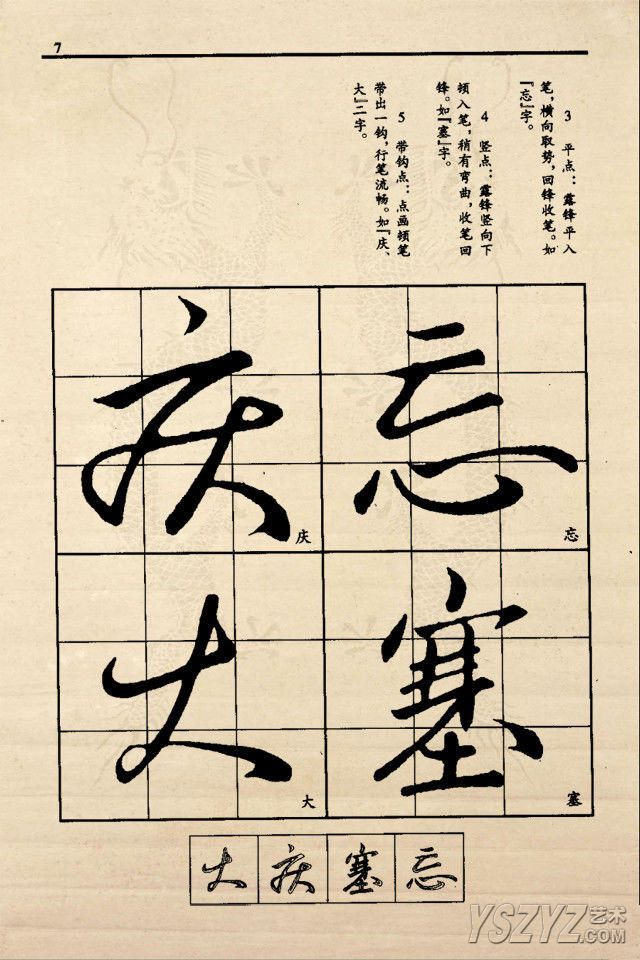 7
3 平点：露锋平入
笔，横向取势，回锋收笔。如
『忘』字。
4 竖点：露锋竖向下
顿入笔，稍有弯曲，收笔回
锋。如『塞』字。
5 带钩点：点画顿笔
带出一钩，行笔流畅。如『庆、
大』二字。
忘
忘
塞
塞
庆
庆
大
大
大 庆 塞 忘
YSZYZ艺术
.COM